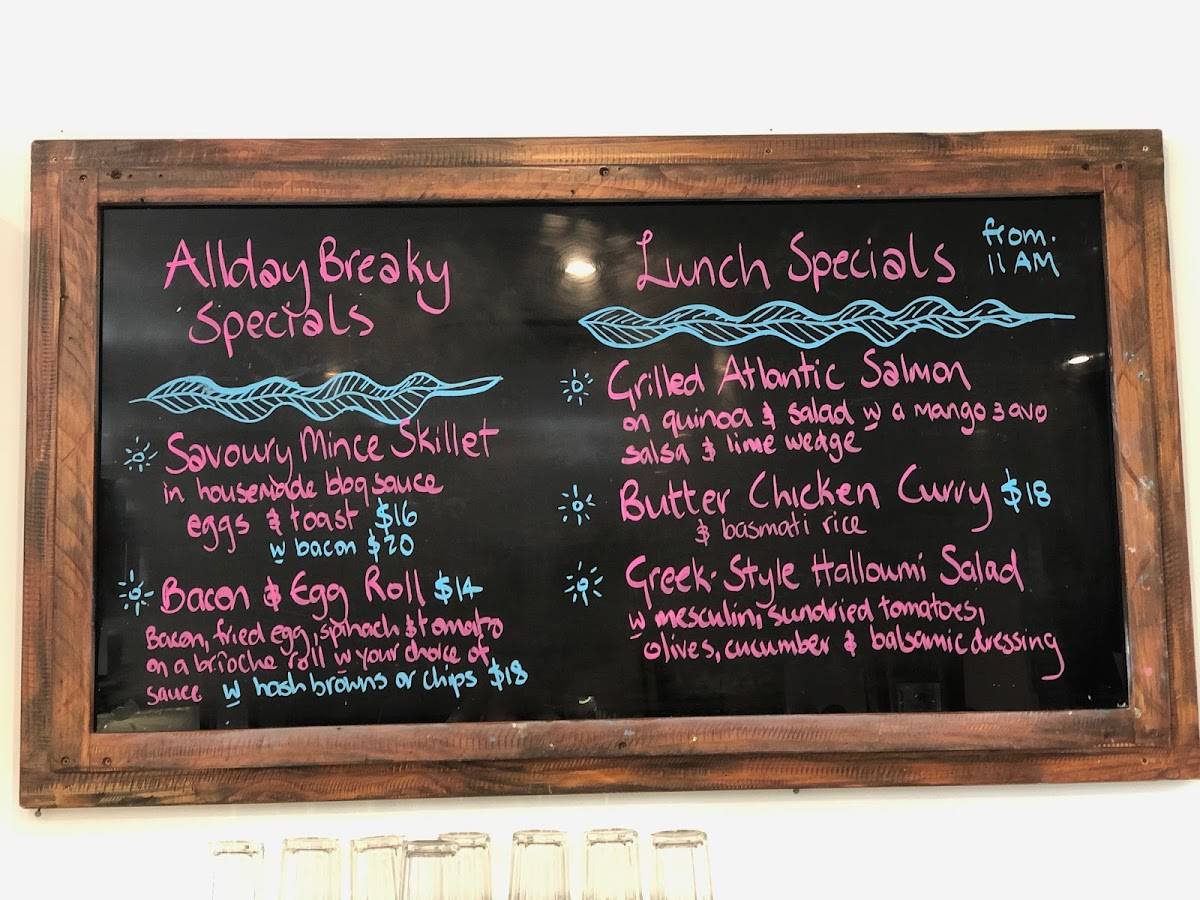 Allday Breaky
Specials
Savoury Mince Skillet
in housemade bbq sauce
eggs & toast $16
w bacon $20
Bacon & Egg Roll $14
Bacon, fried egg, spinach & tomato
on a brioche roll w your choice of
sauce w hash browns or chips $18
Lunch Specials
from.
11 AM
Grilled Atlantic Salmon
on quinoa & salad w a mango & avo
salsa & lime wedge
Butter Chicken Curry $18
& basmati rice
Greek-Style Halloumi Salad
w mesculin, sundried tomatoes,
olives, cucumber & balsamic dressing